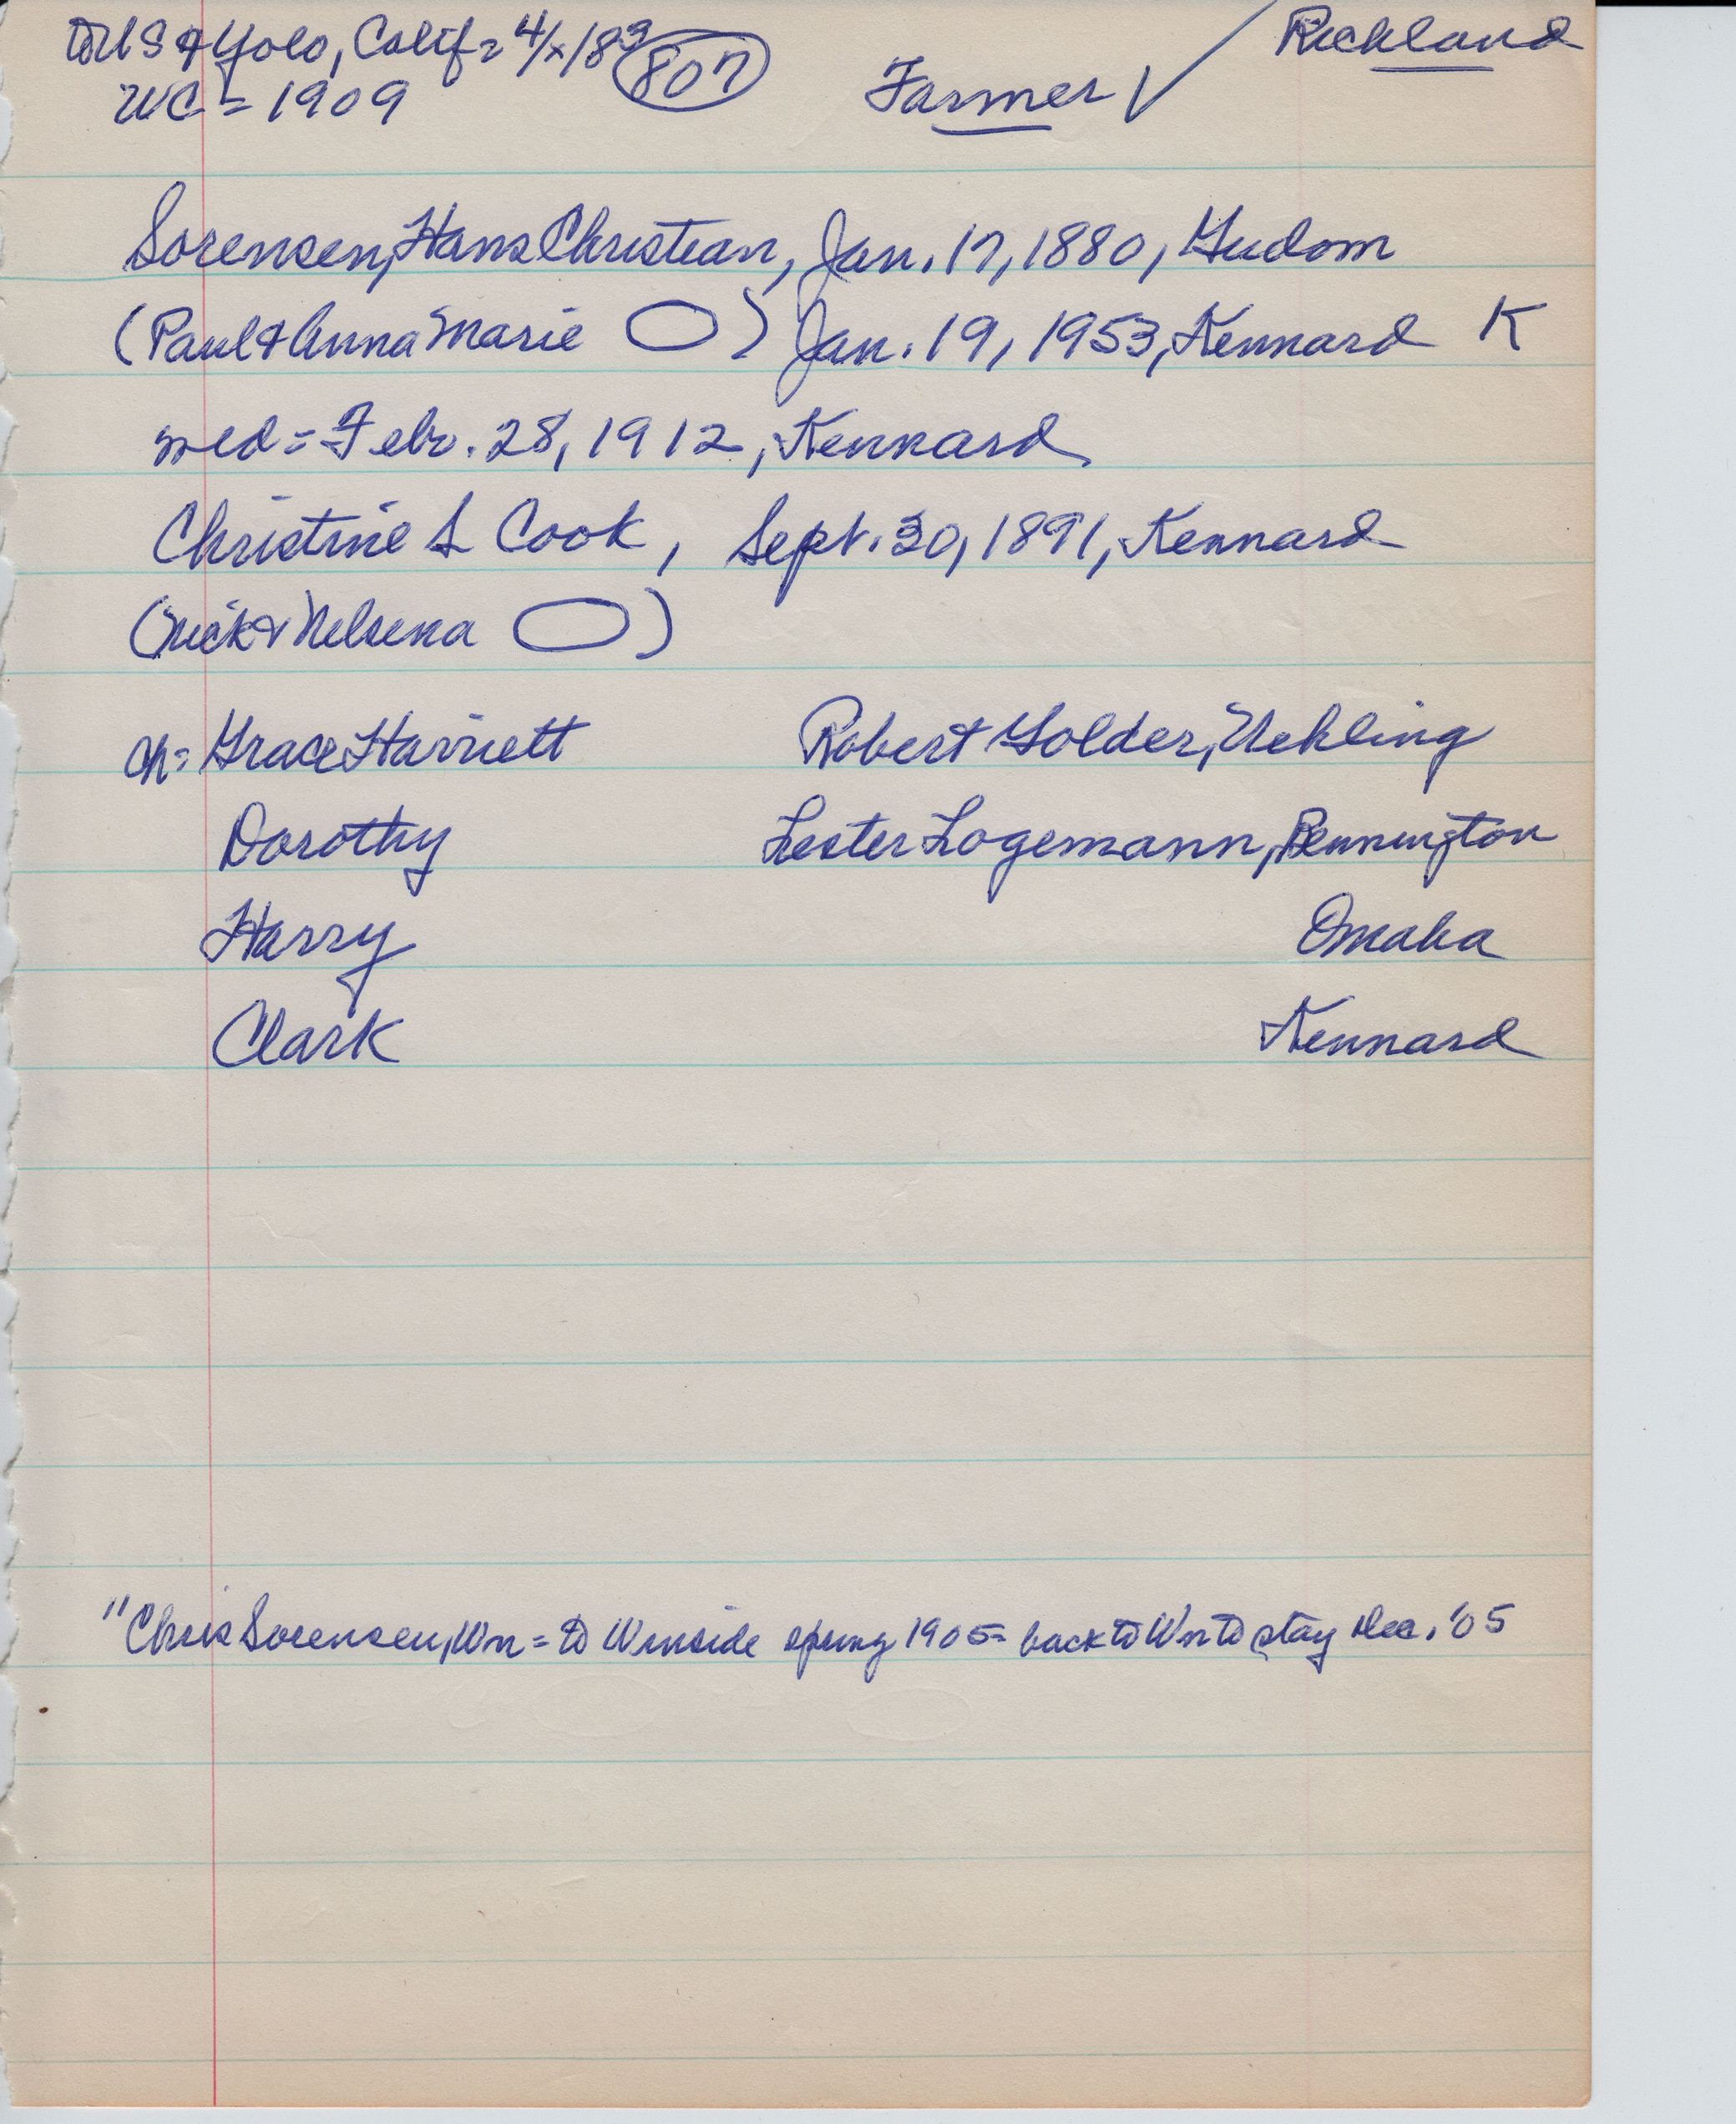 to US & Yolo, Calif = 4/x/183 807 Farmer ✓ Richland
WC = 1909
Sorensen, Hans Christian, Jan. 17, 1880, Gudom
(Paul & Anna Marie ) Jan. 19, 1953, Kennard K
wed = Febr. 28, 1912, Kennard
Christine S Cook, Sept. 30, 1891, Kennard
(Nick & Nelsena )
ch = Grace Harriett Robert Golder, Uehling
Dorothy Lester Logemann, Bennington
Harry Omaha
Clark Kennard
"Chris Sorensen, Wn = to Winside spring 1905 = back to Wn to stay Dec. '05